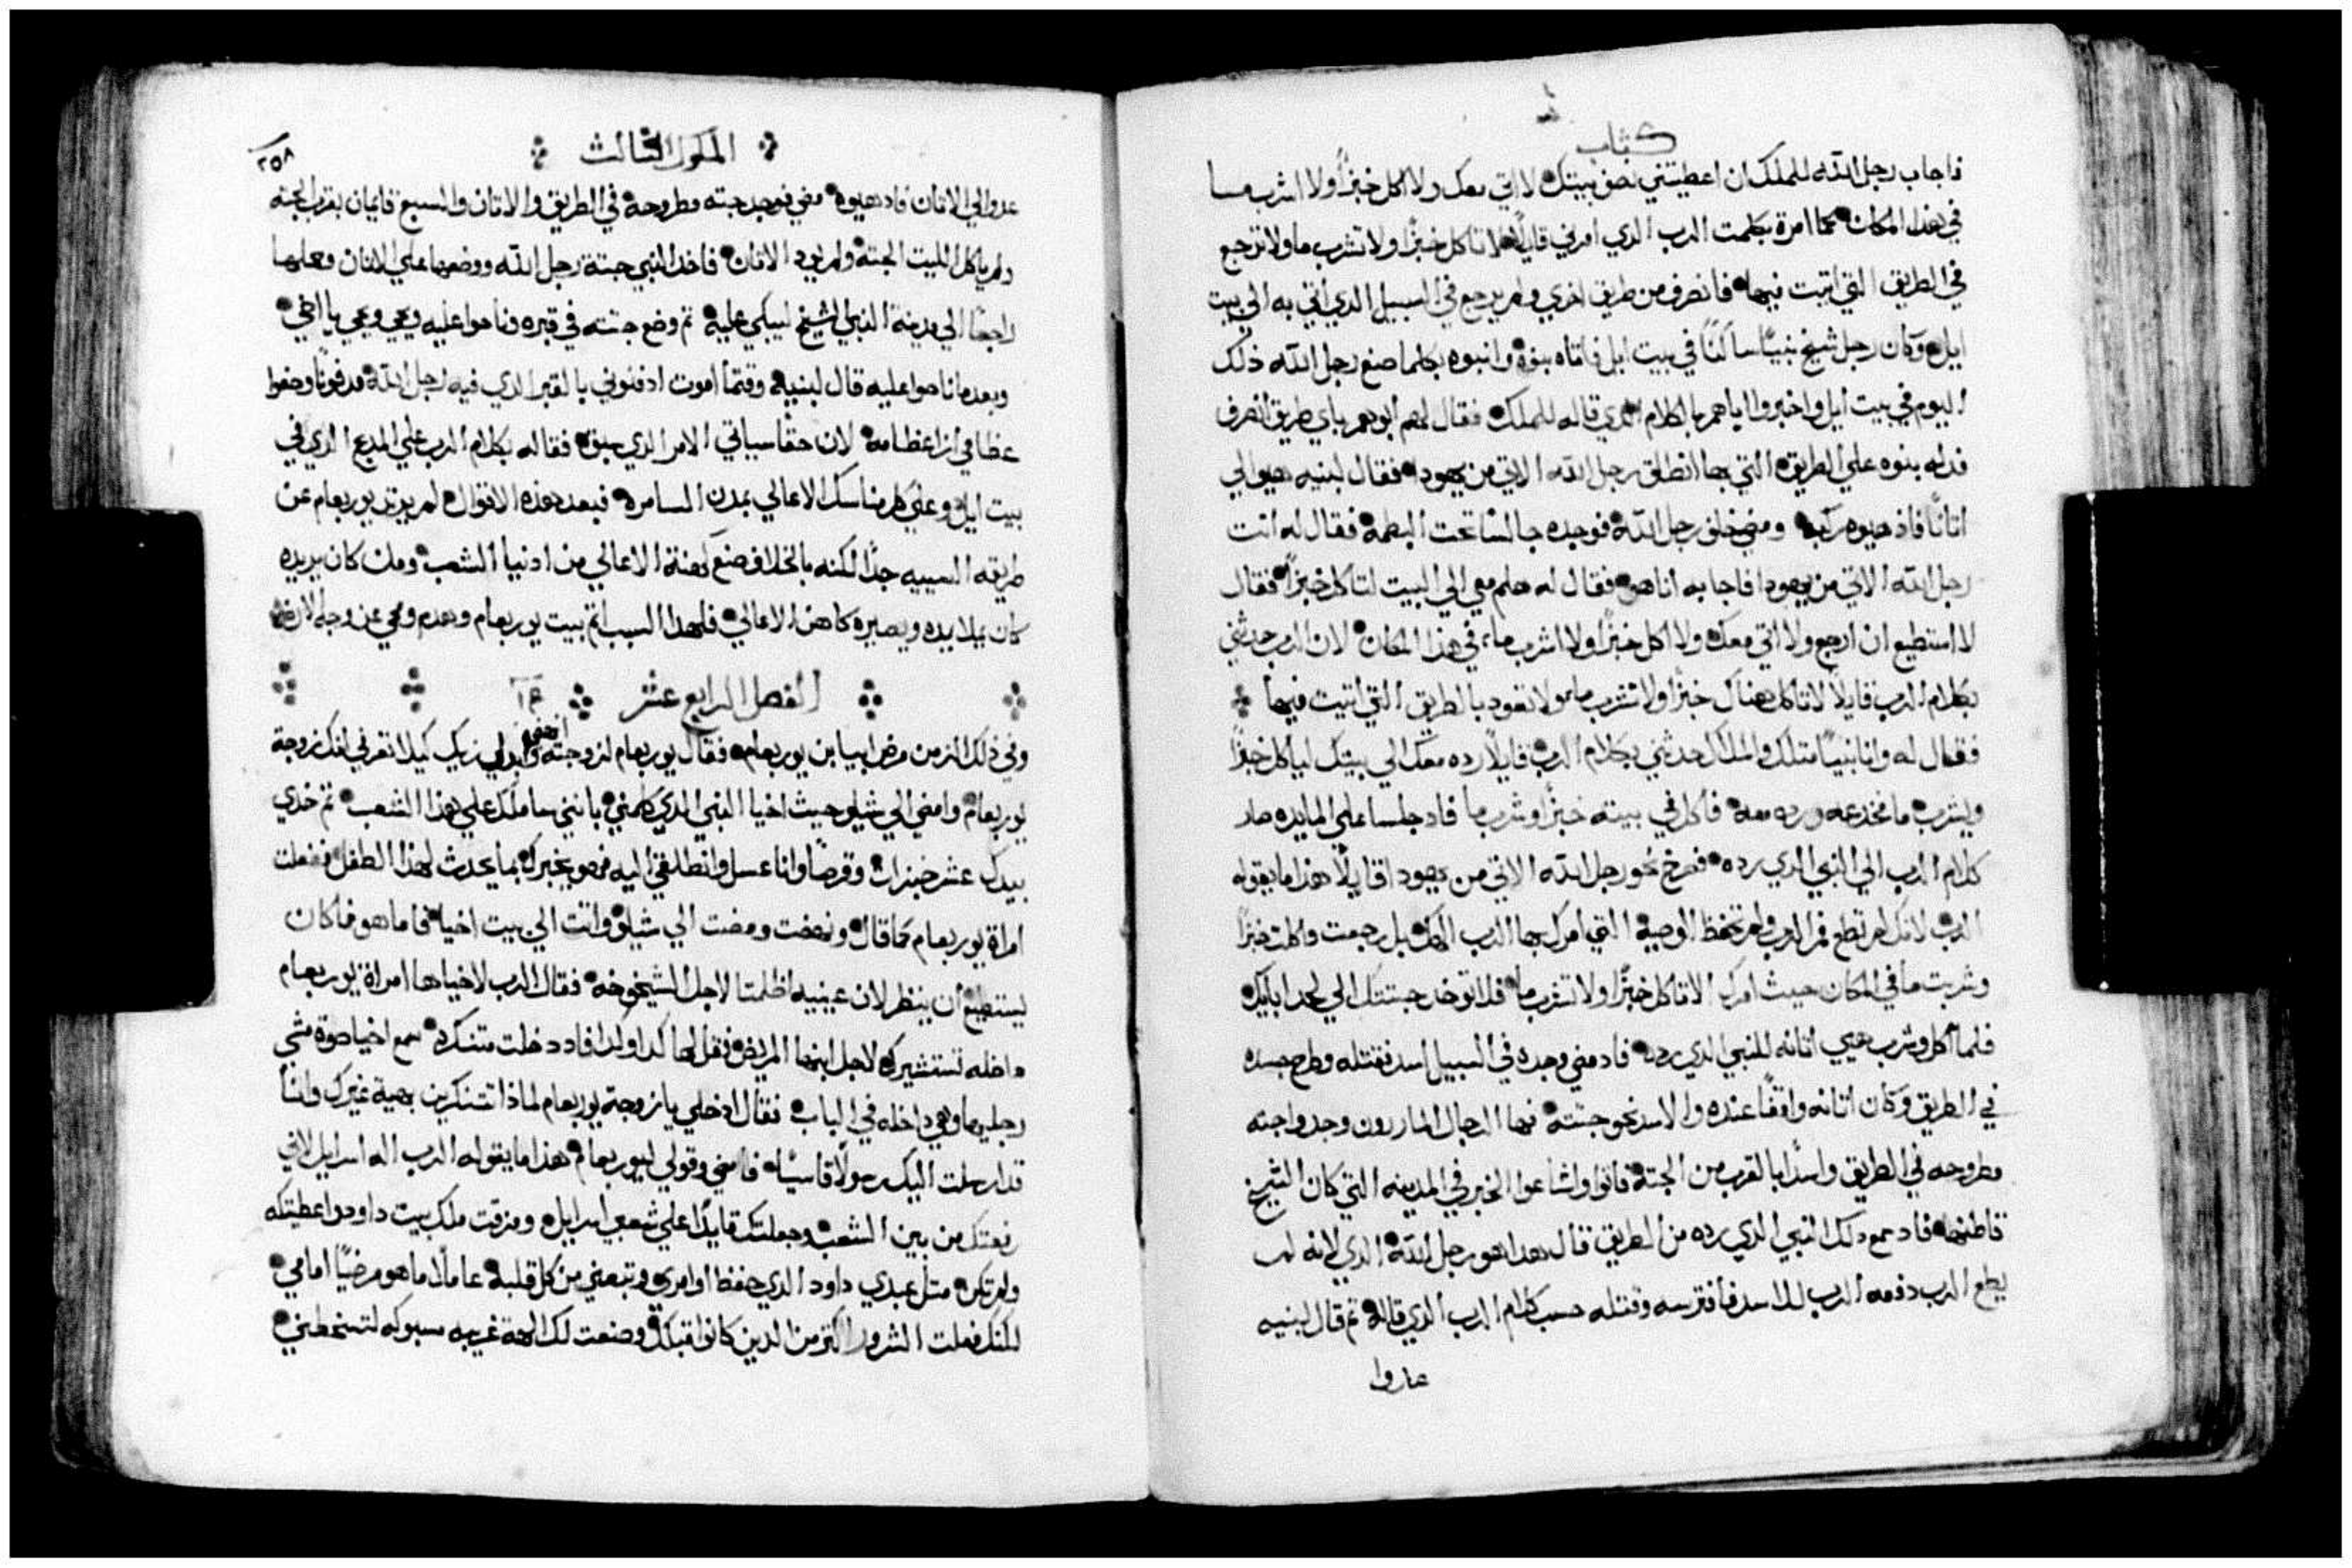 كتاب
فاجاب رجل الله للملك ان اعطيتني نصف بيتك لا اتي معك ولا اكل خبزًا ولا اشرب ما
في هذا المكان كما امرة بكلمت الرب الذي امرني قايلًا لا تاكل خبزًا ولا تشرب ما ولا ترجع
في الطريق التي اتيت فيها فانصرف من طريق اخري ولم يرجع في السبيل الذي اتي به الي بيت
ايل وكان رجل شيخ نبيًا ساكنًا في بيت ايل فاتاه بنوة وانبوه بكلما صنع رجل الله ذلك
اليوم في بيت ايل واخبروا اياهم بالكلام الذي قاله للملك فقال لهم ابوهم باي طريق انصرف
فدله بنوه علي الطريق التي بها انطلق رجل الله الاتي من يهودا فقال لبنيه هيوا لي
اتانًا فاذ هيوه ركب ومضي خلف رجل الله فوجده جالسًا تحت البطمة فقال له انت
رجل الله الاتي من يهودا فاجابه انا هو فقال له هلم معي الي البيت لتاكل خبزًا فقال
لا استطيع ان ارجع ولا اتي معك ولا اكل خبزًا ولا اشرب ما في هذا المكان لان الرب حدثني
بكلام الرب قايلًا لا تاكل هناك خبزًا ولا تشرب ما ولا تعود بالطريق التي اتيت فيها
فقال له وانا نبيًا متلك والملاك حدثني بكلام الرب قايلًا رده معك الي بيتك لياكل خبزًا
ويشرب ما فخدعه ورده معه فاكل في بيته خبزًا وشرب ما فاد جلسا علي المايده صار
كلام الرب الي النبي الذي رده فصرخ نحو رجل الله الاتي من يهودا قايلًا هذا ما يقوله
الرب لانك لم تطع فم الرب ولم تحفظ الوصية التي امرك بها الرب الهك بل رجعت واكلت خبزًا
وشربت ما في المكان حيث امرك الا تاكل خبزًا ولا تشرب ما فلا توخد جتتك الي لحد ابايك
فلما اكل وشرب هيي اتانه للنبي الذي رده فاد مضي وجده في السبيل اسد فقتله وطرح جسده
في الطريق وكان اتانه واقفًا عنده والاسد نحو جتته فها الرجال المارون وجدوا جته
مطروحه في الطريق واسدًا بالقرب من الجتة فاتوا واشاعوا الخبر في المدينه التي كان الشيخ
قاطنها فاد سمع دلك النبي الذي رده من الطريق قال هدا هو رجل الله الذي لانه لم
يطع الرب دفعه الرب للاسد فافترسه وقتله حسب كلام الرب الذي قاله تم قال لبنيه
عدوا
الملوك الثالث
٢٥٨
عدوا لي الاتان فاد هيوة مضي فوجد جتته مطروحة في الطريق والاتان والسبع قايمان بقرب الجته
ولم ياكل الليت الجتة ولم يود الاتان فاخد النبي جتة رجل الله ووضعها علي الاتان وحملها
راجعًا الي مدينة النبي الشيخ ليبكي عليه تم وضع جتته في قبره وناحوا عليه وي وي يا اخي
وبعد ما ناحوا عليه قال لبنيه وقتما اموت ادفنوني بالقبر الدي فيه رجل الله مدفونًا وضعوا
عظامي ازا عظامه لان حقًا سياتي الامر الدي سبق فقاله بكلام الرب علي المدبح الذي في
بيت ايل وعلي كل مناسك الاعالي بمدن السامرة فبعد هذه الاقوال لم يرتد يوربعام عن
طريقه السييه جدًا لكنه بالخلاف صنع كهنة الاعالي من ادنيا الشعب ومن كان يريده
كان يملا يده ويصيره كاهن الاعالي فلهدا السبب اتم بيت يوربعام وهدم ومحي عن وجه الارض
الفصل الرابع عشر ١٤
وفي ذلك الزمن مرض ابيا ابن يوربعام فقال يوربعام لزوجته انهضي وابدلي زيك كيلا تعرفي انك زوجة
يوربعام وامضي الي شيلو حيث اخيا النبي الدي كلمني بانني ساملك علي هدا الشعب تم خدي
بيدك عشر خبزات وقرصًا وانا عسل وانطلقي اليه فهو يخبرك بما يحدث لهدا الطفل ففعلت
امراة يوربعام كما قال ونهضت ومضت الي شيلو واتت الي بيت اخيا فاما هو فما كان
يستطيع ان ينظر لان عينيه اظلمتا لاجل الشيخوخه فقال الرب لاخيا ها امراة يوربعام
داخله تستشيرك لاجل ابنها المريض فقل لها كدا وكدا فاد دخلت متنكرة سمع اخيا صوة مشي
رجليها وهي داخله في الباب فقال ادخلي يا زوجة يوربعام لماذا تتنكرين بهية غيرك وانا
قد ارسلت اليك رسولًا قاسيًا فامضي وقولي ليوربعام هذا ما يقوله الرب اله اسرايل لاني
رفعتك من بين الشعب وجعلتك قايدًا علي شعبي اسرايل ومزقت ملك بيت داود واعطيتكه
ولم تكن متل عبدي داود الدي حفظ اوامري وتبعني من كل قلبه عاملًا ما هو مرضيًا امامي
لكنك فعلت الشرور اكتر من الدين كانوا قبلك وصنعت لك الهة غريبه مسبوكه لتسخطني